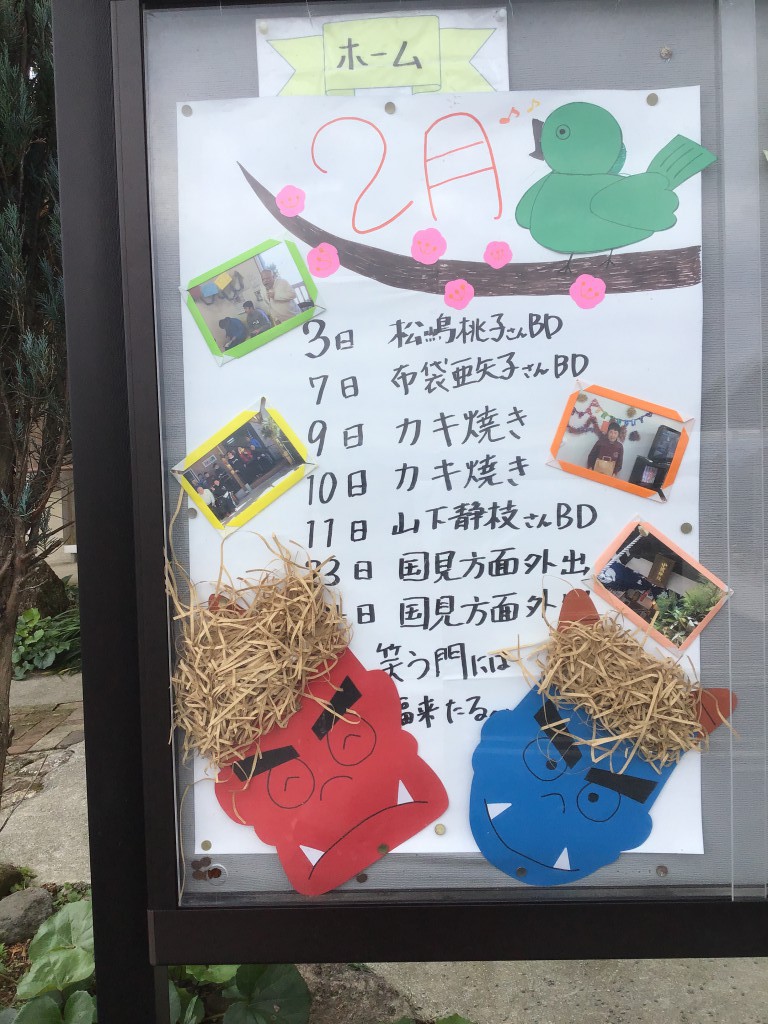 ホーム
2月
3日 松嶋桃子さんBD
7日 布袋亜矢子さんBD
9日 カキ焼き
10日 カキ焼き
11日 山下静枝さんBD
3日 国見方面外出
日 国見方面外
笑う門には
福来たる〜